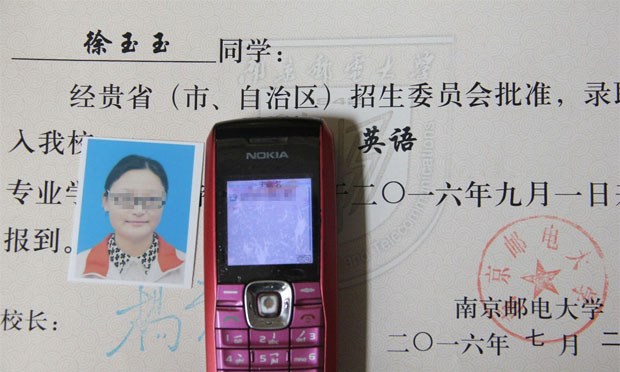 徐玉玉 同学：
经贵省（市、自治区）招生委员会批准，录取
入我校 英语
专业学 于二〇一六年九月一日
报到。
NOKIA
南京邮电大学
校长：
南京邮电大学
二〇一六年 七 月 二